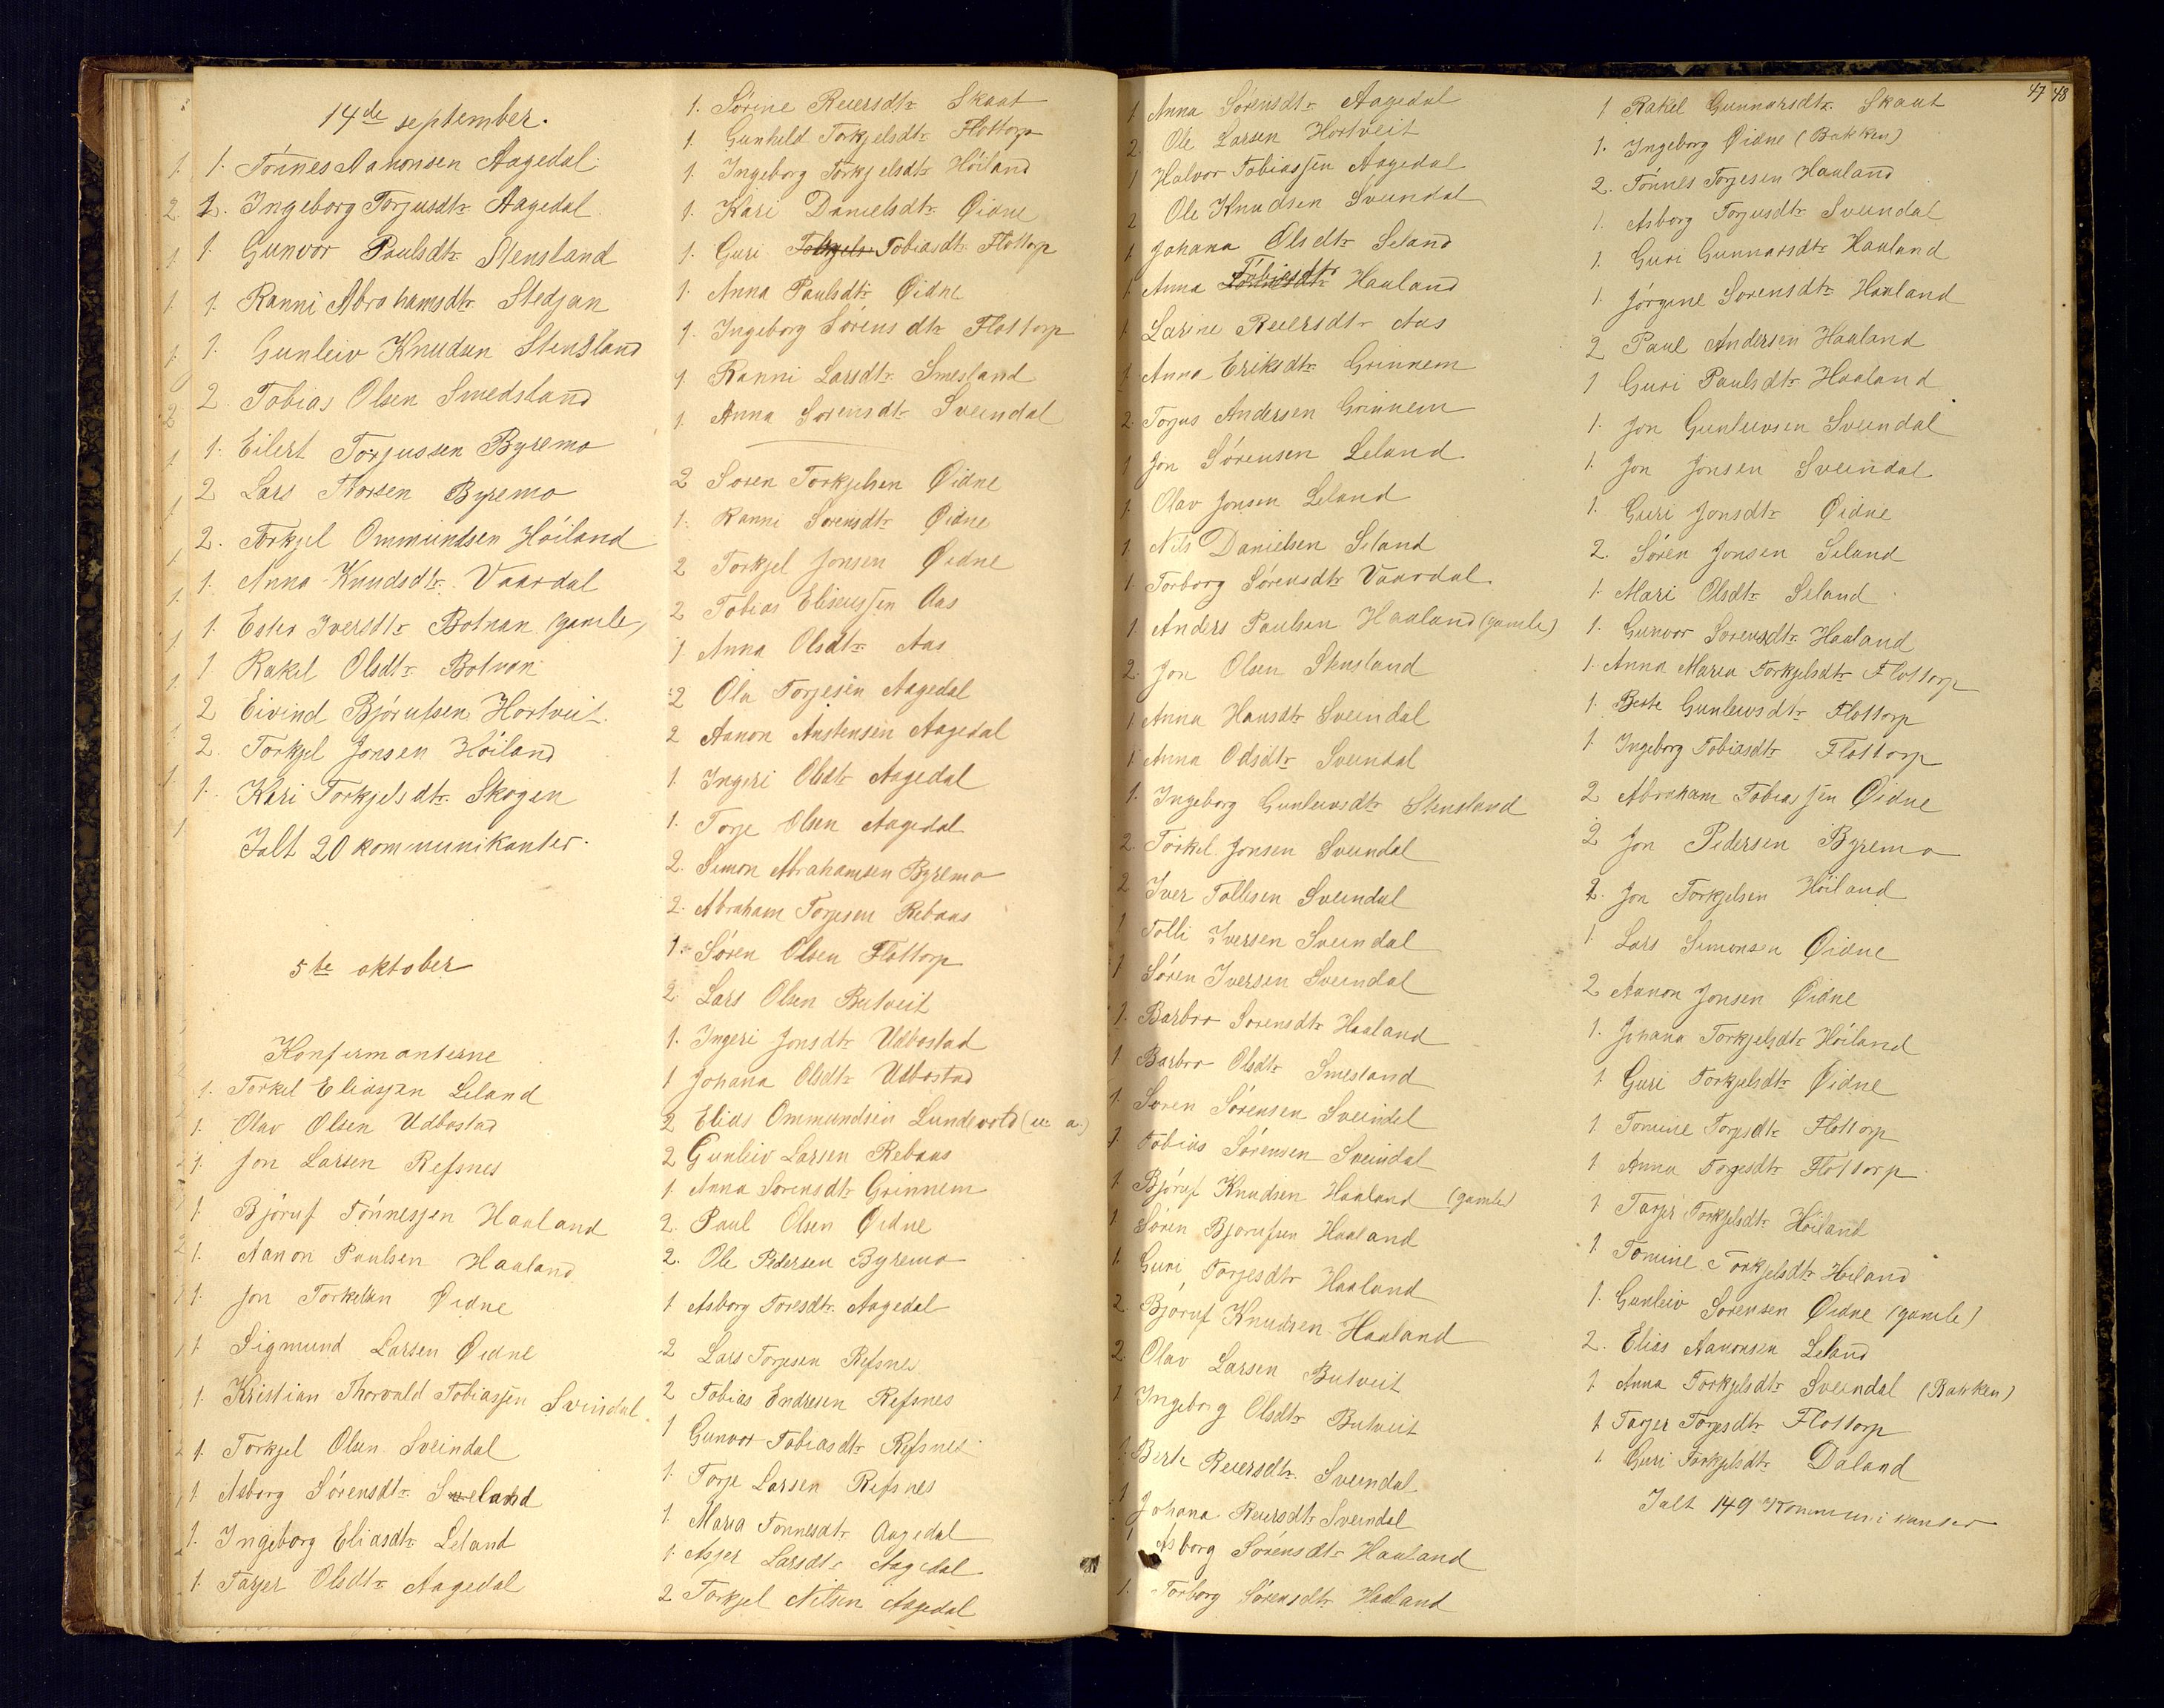 14de september.
1. Tönnes Aanonsen Aagedal.
2. Ingeborg Torjusdtr Aagedal.
1. Gunvor Paulsdtr Stensland
1. Ranni Abrahamsdtr Stedjan
1. Gunleiv Knudsen Stensland
2. Tobias Olsen Smedsland
1. Eilert Torjussen Byremo
2 Lars Thorsen Byremo
2. Torkjel Ommundsen Höiland
1. Anna Knudsdtr Vaardal
1. Ester Iversdtr Botnan (gamle)
1 Rakel Olsdtr Botnan
2 Eivind Björufsen Hortveit.
2. Torkjel Jonsen Höiland
1. Kari Torkjelsdtr Skogen
Ialt 20 kommunikanter.
5te oktober
Konfirmanterne
1. Torkel Eliassen Leland
1. Olav Olsen Udbostad
1. Jon Larsen Refsnes
1 Björuf Tönnessen Haaland
1. Aanon Paulsen Haaland
1. Jon Torkelsen Øidne
1 Sigmund Larsen Øidne
1. Kristian Thorvald Tobiassen Svindal
1. Torkjel Olsen Sveindal
1 Asborg Sörensdtr Seland
1. Ingeborg Eliasdtr Leland
1. Tarjer Olsdtr Aagedal
1. Sörine Reiersdtr Skaat
1. Gunhild Torkjelsdtr Flottorp
1. Ingeborg Torkjelsdtr Höiland
1. Kari Danielsdtr Øidne
1. Guri Tobiasdtr Flottorp
1. Anna Paulsdtr Øidne
1. Ingeborg Sörensdtr Flottorp
1. Ranni Larsdtr Smesland
1. Anna Sorensdtr Sveindal
2 Soren Torkjelsen Øidne
1. Ranni Sorensdtr Øidne
2 Torkjel Jonsen Øidne
2 Tobias Eliseussen Aas
1 Anna Olsdtr Aas
2 Ola Torjesen Aagedal
2 Aanon Austensen Aagedal
1. Ingeri Olsdtr Aagedal
1. Torje Olsen Aagedal
2. Simon Abrahamsen Byremo
2. Abraham Torjesen Rebaas
1. Sören Olsen Flottorp
2. Lars Olsen Butveit
1. Ingeri Jonsdtr Udbostad
1 Johana Olsdtr Udbostad
2 Elias Ommundsen Lundevold (u. a.)
2 Gunleiv Larsen Rebaas
1. Anna Sorensdtr Grinnem
2. Paul Olsen Øidne
2. Ole Pedersen Byremo
1 Asborg Toresdtr Aagedal
2 Lars Torjesen Refsnes
2 Tobias Endresen Refsnes
1 Gunvor Tobiasdtr Refsnes
1. Torje Larsen Refsnes
1. Maria Tonnesdtr Aagedal
1. Asjer Larsdtr Aagedal
2 Torkjel Nilsen Aagedal
1 Anna Sörensdtr Aagedal
2. Ole Larsen Hortveit
1 Halvor Tobiassen Aagedal
2 Ole Knudsen Sveindal
1 Johana Olsdtr Seland
1 Anna Tobiasdtr Haaland
1 Larine Reiersdtr Aas
1 Anna Eriksdtr Grinnem
2. Torjus Andersen Grinnem
1 Jon Sörensen Leland
1. Olav Jonsen Leland
1. Nils Danielsen Seland
1. Torborg Sörensdtr Vaardal.
1. Anders Paulsen Haaland (gamle)
2. Jon Olsen Stensland
1 Anna Hansdtr Sveindal
1 Anna Odsdtr Sveindal
1. Ingeborg Gunleivsdtr Stensland
2. Torkel Jonsen Sveindal
2 Iver Tollisen Sveindal
1 Tolli Iversen Sveindal
1 Sören Iversen Sveindal
1. Barbro Sorensdtr Haaland
1 Barbro Olsdtr Smesland
1. Sören Sörensen Sveindal
1. Tobias Sörensen Sveindal
1. Björuf Knudsen Haaland (gamle)
1 Sören Bjorufsen Haaland
1. Guri Torjesdtr Haaland
2. Björuf Knudsen Haaland
2. Olav Larsen Butveit
1 Ingeborg Olsdtr Butveit
1. Berte Reiersdtr Sveindal
1 Johana Reiersdtr Sveindal
1 Asborg Sörensdtr Haaland
1. Torborg Sörensdtr Haaland
47 48
1 Rakel Gunnarsdtr Skaut
1. Ingeborg Øidne (Bakken)
2. Tönnes Torjesen Haaland
1. Asborg Torjusdtr Sveindal
1. Guri Gunnarsdtr Haaland
1. Jörgine Sorensdtr Haaland
2 Paul Andersen Haaland
1 Guri Paulsdtr Haaland
1. Jon Gunleivsen Sveindal
1. Jon Jonsen Sveindal
1. Guri Jonsdtr Øidne
2. Sören Jonsen Seland
1. Mari Olsdtr Seland
1. Gunvor Sorensdtr Haaland
1. Anna Maria Torkjelsdtr Flottorp
1. Berte Gunleivsdtr Flottorp
1. Ingeborg Tobiasdtr Flottorp
2 Abraham Tobiassen Øidne
2 Jon Pedersen Byremo
2. Jon Torkjelsen Höiland
1 Lars Simonsen Øidne
2 Aanon Jonsen Øidne
1. Johana Torkjelsdtr Höiland
1 Guri Torkjelsdtr Øidne
1 Tomine Torjesdtr Flottorp
1 Anna Torjesdtr Flottorp
1 Tarjer Torkjelsdtr Höiland
1 Tomine Torkjelsdtr Höiland
1. Gunleiv Sorensen Øidne (gamle)
2. Elias Aanonsen Leland
1 Anna Torkjelsdtr Sveindal (Bakken)
1 Tarjer Torjesdtr Flottorp
1 Guri Torkjelsdtr Daland
Ialt 149 Kommunikanter